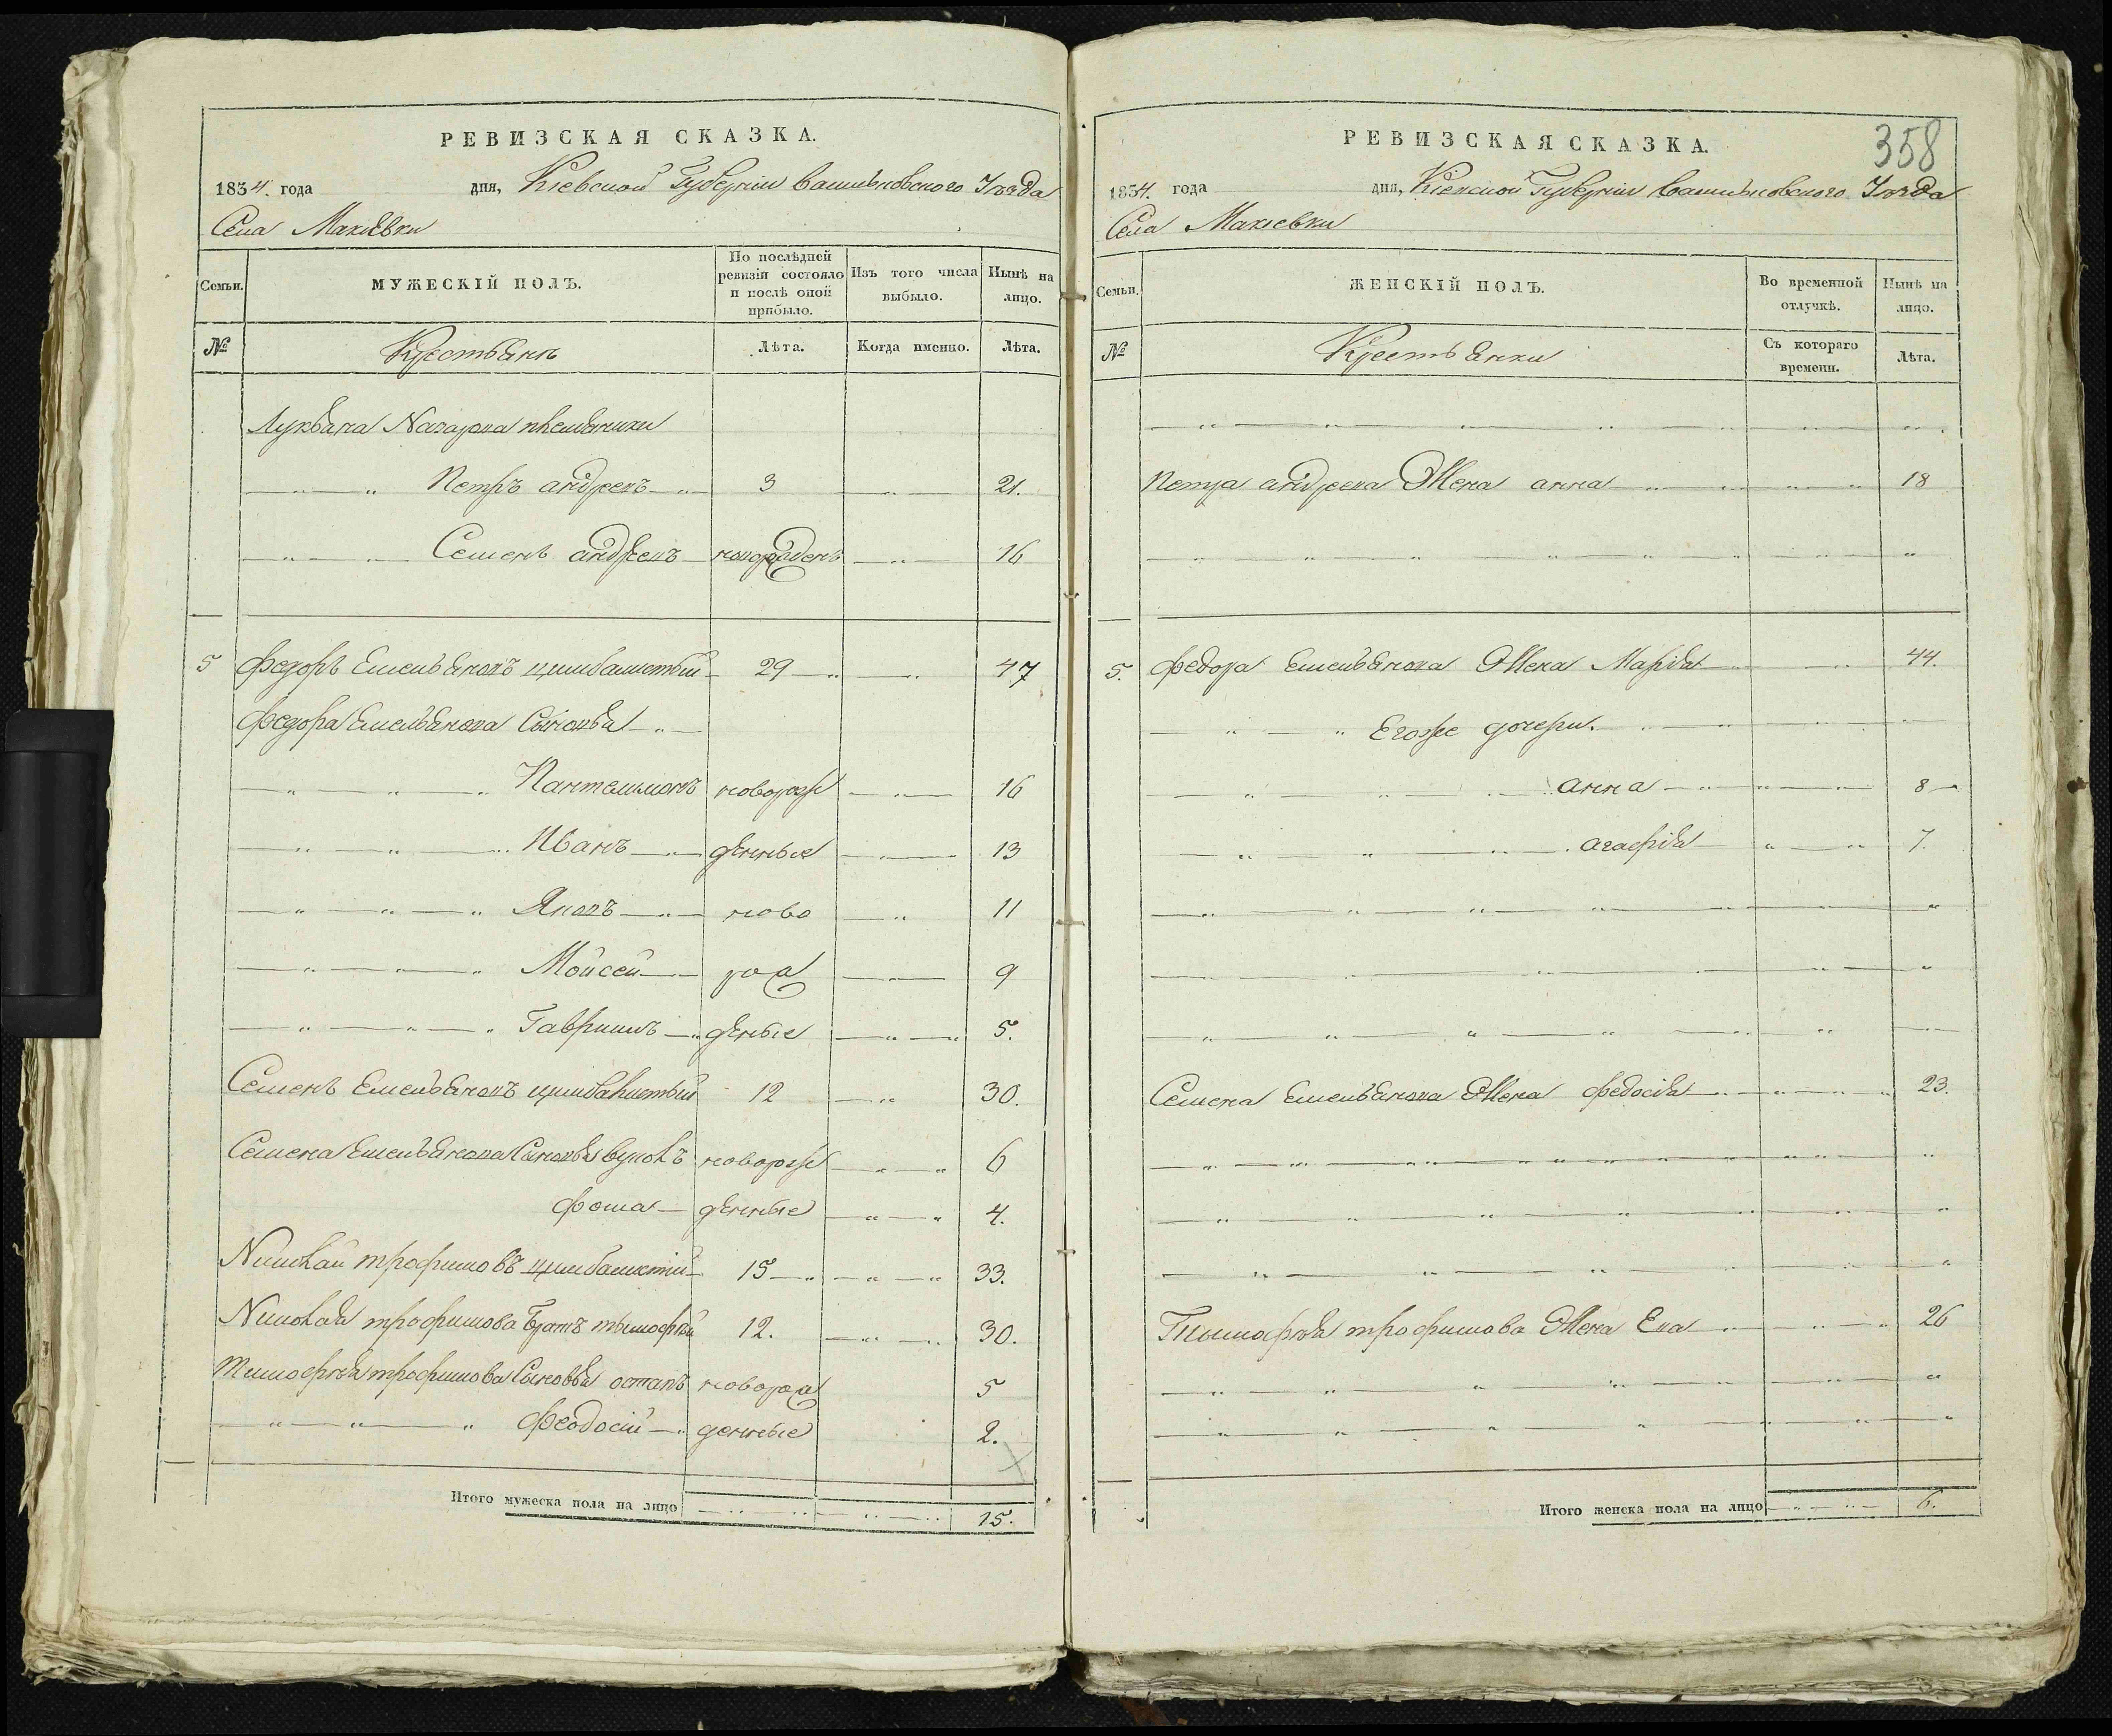 РЕВИЗСКАЯ СКАЗКА.
1834. года дня, Кіевской Губерніи Васильковского Уезда
Села Макіевки
Семьи. МУЖЕСКІЙ ПОЛЪ. По послѣдней ревизіи состояло и послѣ оной прибыло. Изъ того числа выбыло. Нынѣ на лицо.
№ Крестьяне Лѣта. Когда именно. Лѣта.
Лукьяна Назарова племяники
Петръ андреевъ 3 21.
Семенъ андреевъ новорожденъ 16
5 Федоръ Емельяновъ цимбалистый 29 47
Федора Емельянова Сыновья
Пантелимонъ новорож 16
Иванъ дѣнные 13
Яковъ ново 11
Мойсей рож 9
Гаврииль дѣные 5.
Семенъ Емельяновъ цимбалистый 12 30.
Семена Емельянова Сыновья вуколъ новорож 6
фома дѣнные 4.
Николай трофимовъ цимбалистій 15 33.
Николая трофимова Братъ тымофей 12. 30.
Тимофея трофимова Сыновья остапъ новорож 5
Феодосій денные 2.
Итого мужеска пола на лицо 15.
РЕВИЗСКАЯ СКАЗКА.
358
1834. года дня, Кіевской Губерніи Васильковского Уезда
Села Макіевки
Семьи. ЖЕНСКІЙ ПОЛЪ. Во временной отлучкѣ. Нынѣ на лицо.
№ Крестьянки Съ котораго времени. Лѣта.
Петра андреева Жена анна 18
5. Федора Емельянова Жена Марія 44.
Егоже дочери.
анна 8
агафія 7.
Семена Емельянова Жена федосія 23.
Тымофея трофимова Жена Ева 26
Итого женска пола на лицо 6.